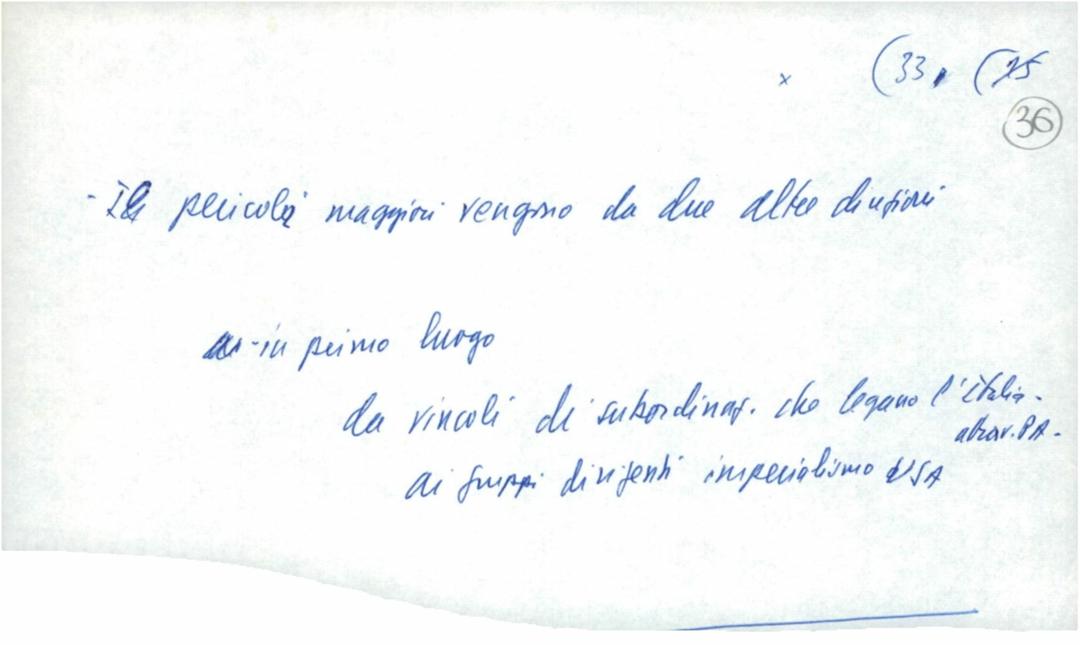 x (33, (25
36
- I pericoli maggiori vengono da due altre direzioni
- in primo luogo
da vincoli di subordinaz. che legano l'Italia -
attrav. PA -
ai gruppi dirigenti imperialismo USA